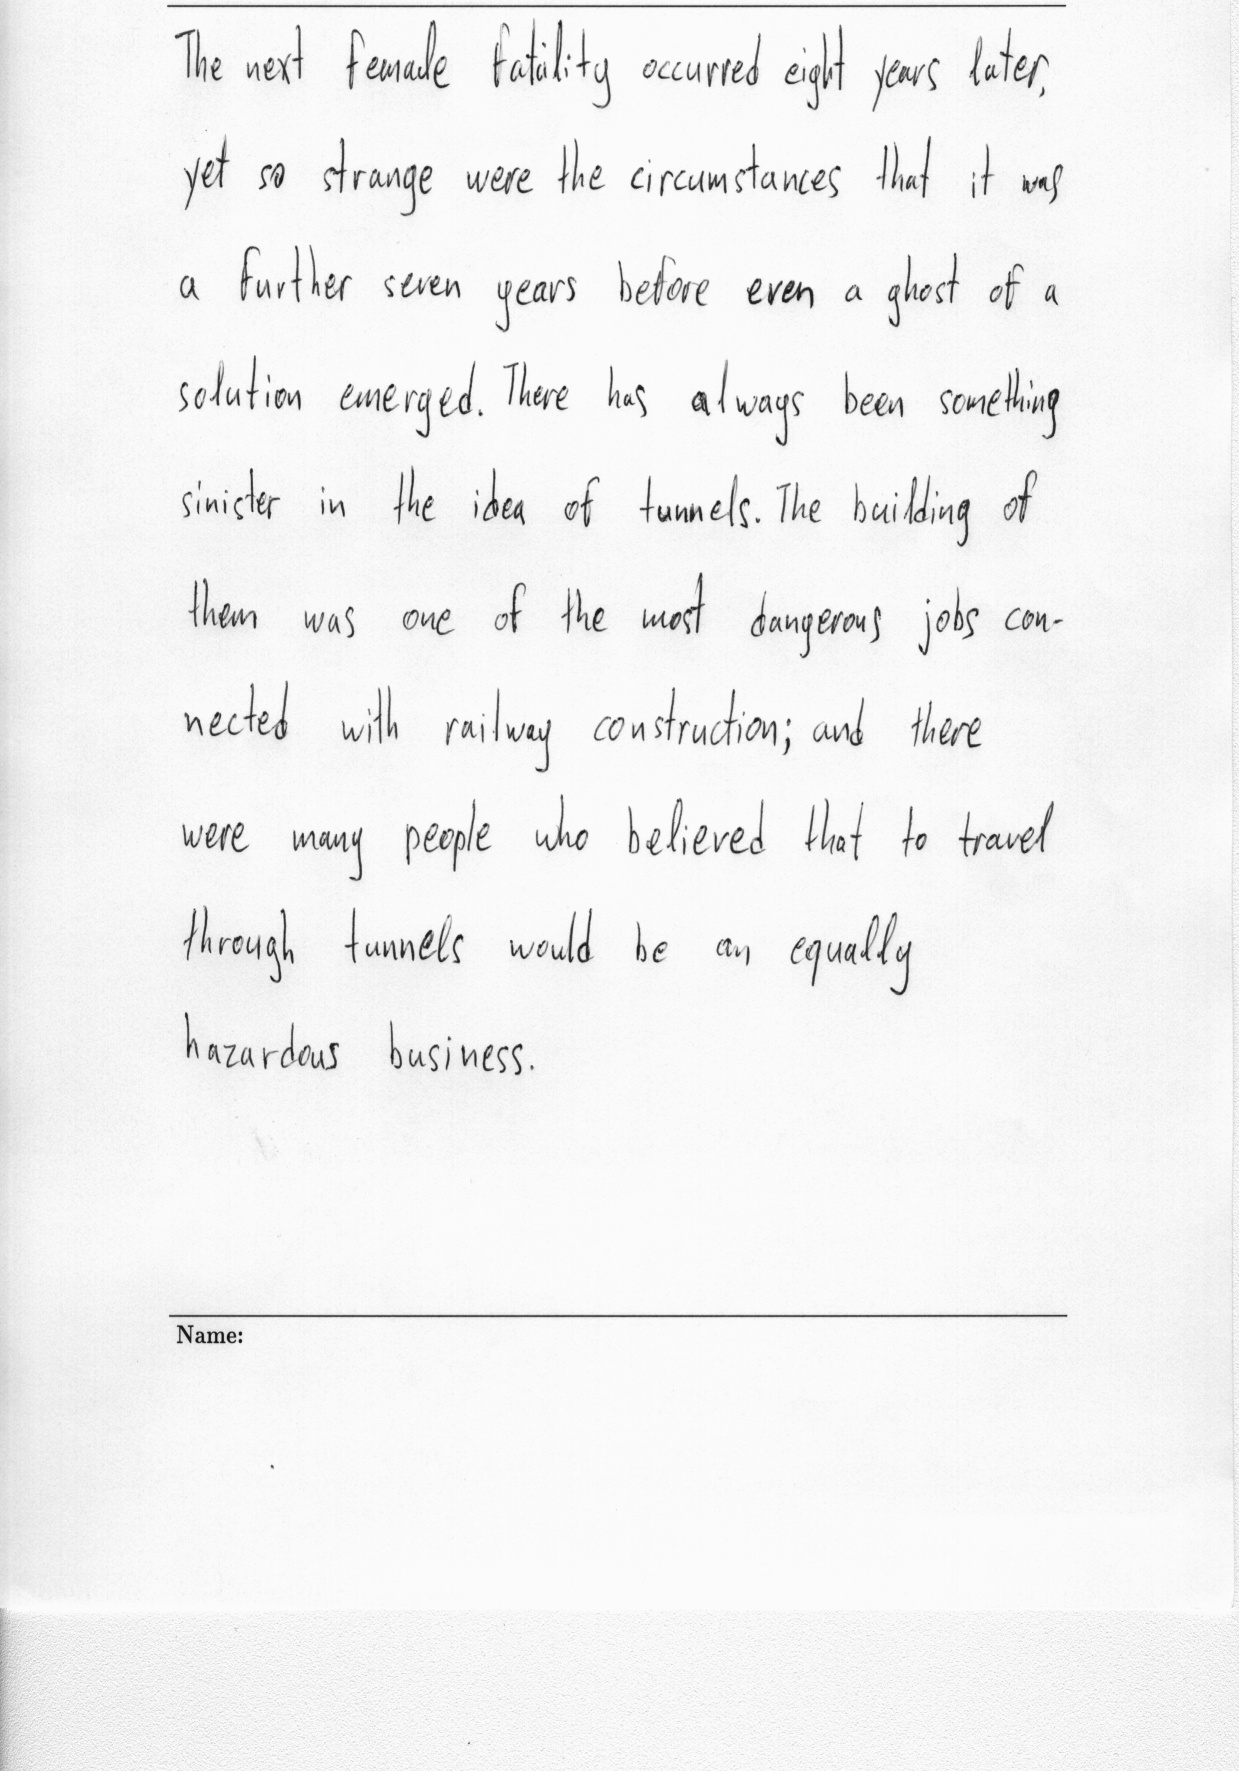 The next female fatality occurred eight years later,
yet so strange were the circumstances that it was
a further seven years before even a ghost of a
solution emerged. There has always been something
sinister in the idea of tunnels. The building of
them was one of the most dangerous jobs con-
nected with railway construction; and there
were many people who believed that to travel
through tunnels would be an equally
hazardous business.
Name: